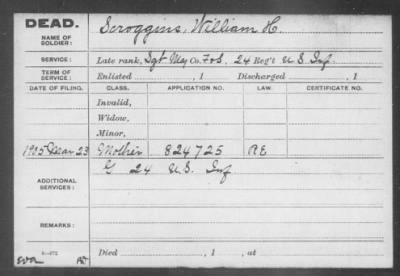 DEAD.
NAME OF SOLDIER: Scroggins, William H.
SERVICE: Late rank, Sgt Maj Co. F&S, 24 Reg't U.S. Inf.
TERM OF SERVICE: Enlisted , 1 Discharged , 1
DATE OF FILING. CLASS. APPLICATION NO. LAW. CERTIFICATE NO.
Invalid,
Widow,
Minor,
1905 Mar 23 Mother 824725
ADDITIONAL SERVICES: G 24 U.S. Inf
REMARKS:
Died , 1 , at